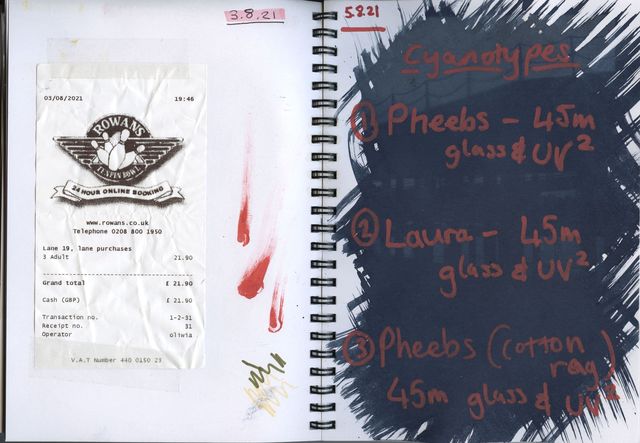 3.8.21
03/08/2021 19:46
ROWANS
TENPIN BOWL
24 HOUR ONLINE BOOKING
www.rowans.co.uk
Telephone 0208 800 1950
Lane 19, lane purchases
3 Adult 21.90
Grand total £ 21.90
Cash (GBP) £ 21.90
Transaction no. 1-2-31
Receipt no. 31
Operator oliwia
V.A.T Number 440 0150 23
5.8.21
Cyanotypes
① Pheebs - 45m
glass & UV²
② Laura - 45m
glass & UV²
③ Pheebs (cotton
rag)
45m glass & UV²